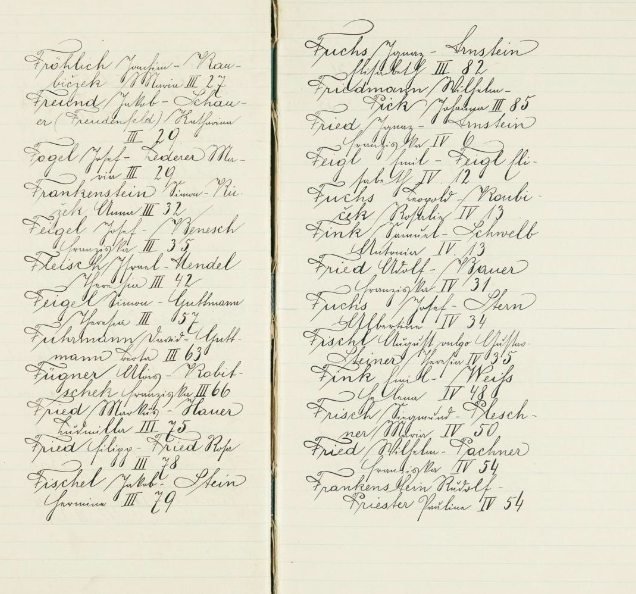 Fröhlich Joachim - Kau-
biček Maria III 27
Freund Jakob - Schau-
er (Freudenfeld) Katharina
III 29
Fogel Josef - Lederer Ma-
ria III 29
Frankenstein Simon - 
Anna III 32
Feigel Josef - Benesch
Franziska III 35
Fleisch Israel - Mendel
Theresia III 42
Feigel Simon - Guttmann
Theresia III 57
Fuhrmann David - Gutt-
mann Berta III 63
Fügner Alois - Robit-
schek Franziska III 66
Fried Markus - Hauer
Ludmilla III 75
Fried Filipp - Fried Rosa
III 78
Fischel Jakob - Stein
Hermine III 79
Fuchs Ignaz - Arnstein
Elisabeth III 82
Friedmann Wilhelm -
Pick Johanna III 85
Fried Ignaz - Arnstein
Franziska IV 9
Feigl Emil - Feigl Eli-
sabeth IV 12
Fuchs Leopold - Koubi-
ček Rosalia IV 13
Fink Samuel - Schwelb
Antonia IV 13
Fried Adolf - Bauer
Franziska IV 31
Fuchs Josef - Stern
Albertine IV 34
Fischl August vulgo Gustav
Steiner Theresia IV 35
Fink Emil - Weiss
Helena IV 48
Frisch Siegmund - Pesch-
ner Maria IV 50
Fried Wilhelm - Pachner
Franziska IV 54
Frankenstein Rudolf -
Priester Pauline IV 54